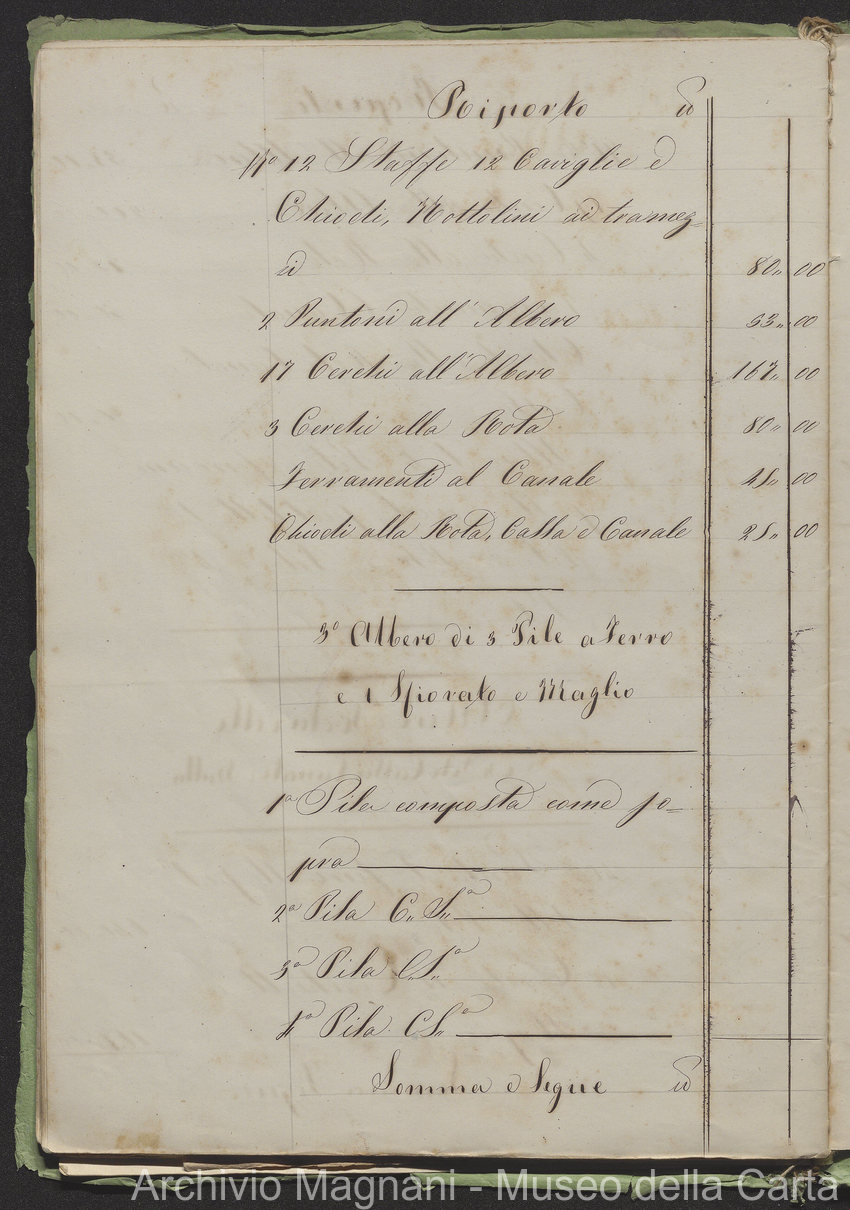 Riporto
N° 12 Staffe 12 Caviglie e
Chiodi, Nottolini ai tramez=
zi 80,, 00
2 Puntoni all'Albero 33,, 00
17 Cerchi all'Albero 167,, 00
3 Cerchi alla Rota 80,, 00
Ferramenti al Canale 00
Chiodi alla Rota, Cassa e Canale 25,, 00
3° Albero di 3 Pile a Ferro
e 1 Sfiorato e Maglio
1ª Pila composta come so=
pra
2ª Pila C,, Sª
3ª Pila C,, Sª
4ª Pila C Sª
Somma e Segue
Archivio Magnani - Museo della Carta